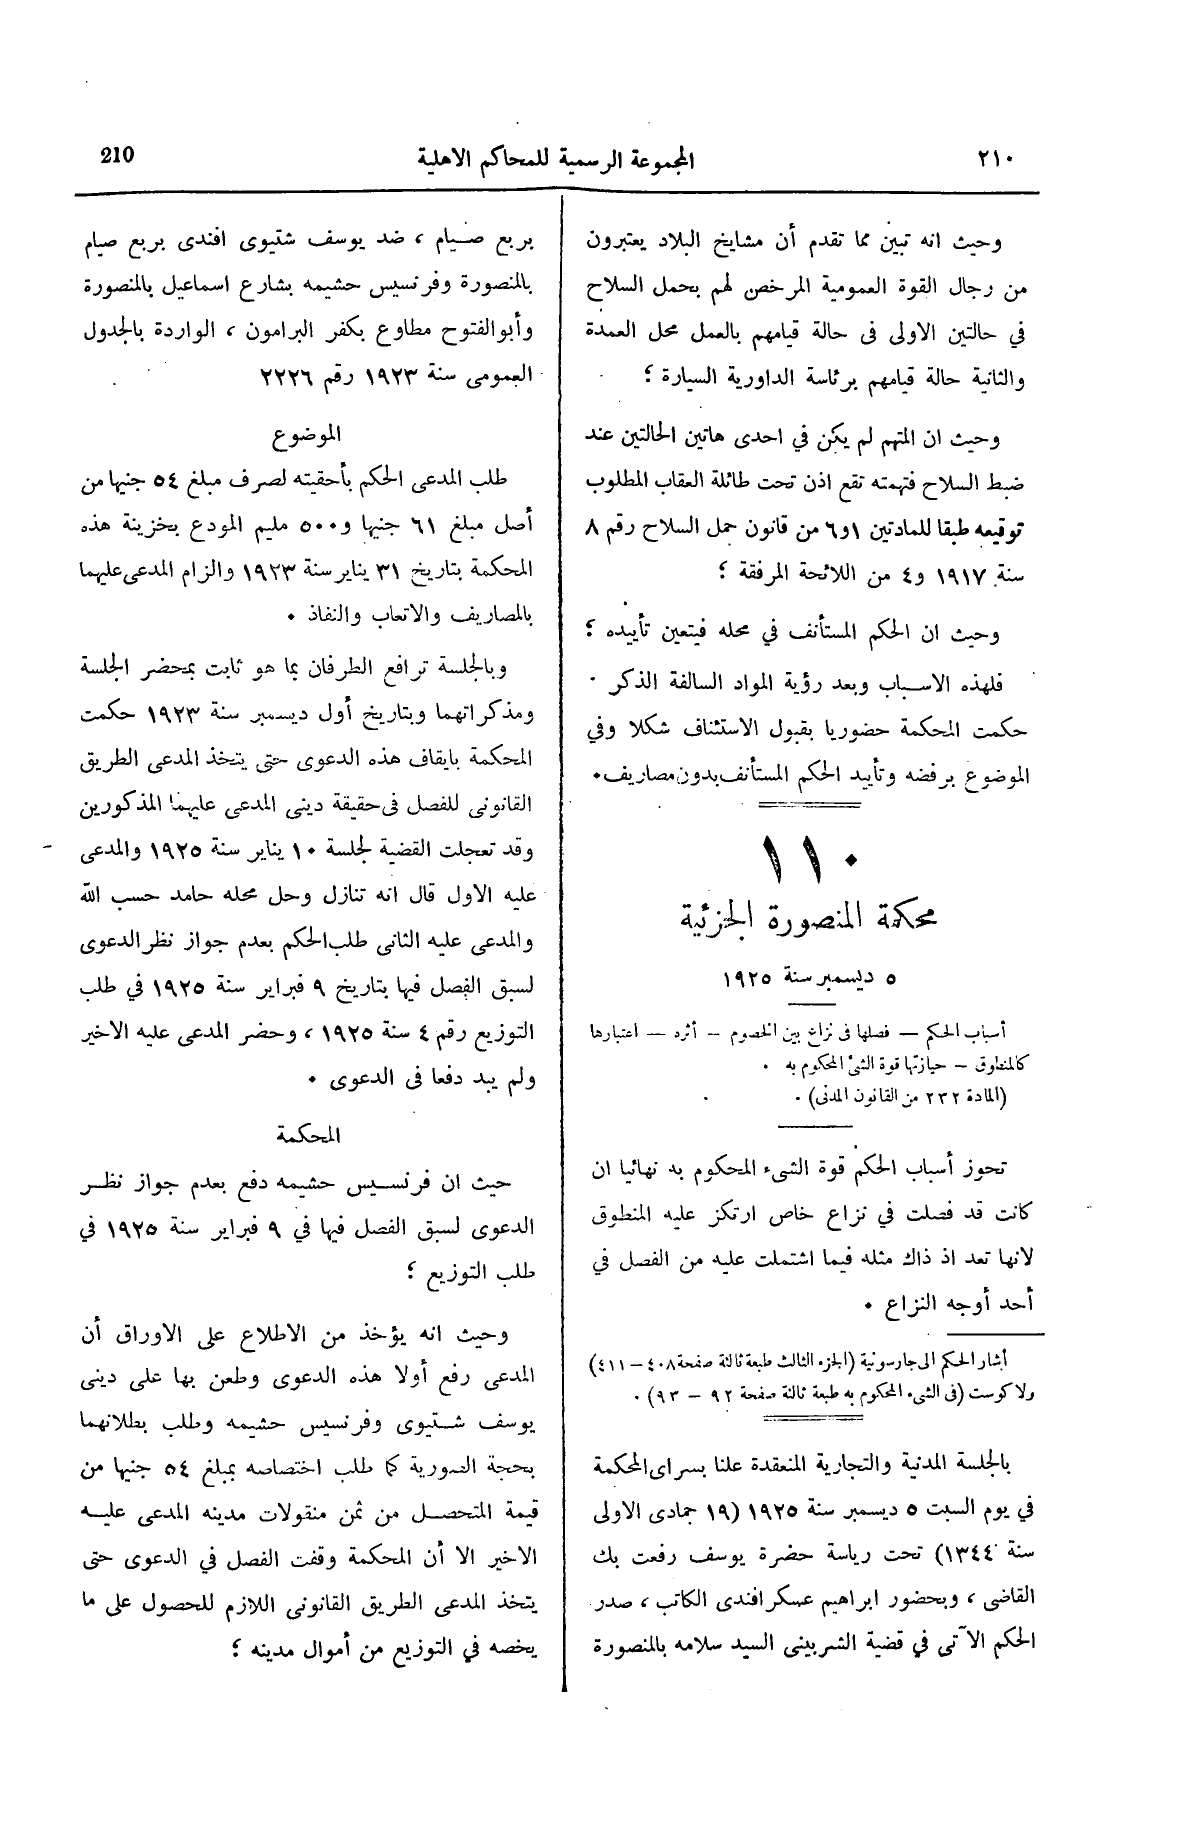 ٢١٠
المجموعة الرسمية للمحاكم الاهلية
210
وحيث انه تبين مما تقدم أن مشايخ البلاد يعتبرون
من رجال القوة العمومية المرخص لهم بحمل السلاح
في حالتين الاولى فى حالة قيامهم بالعمل محل العمدة
والثانية حالة قيامهم برئاسة الداورية السيارة ؛
وحيث ان المتهم لم يكن في احدى هاتين الحالتين عند
ضبط السلاح فتهمته تقع اذن تحت طائلة العقاب المطلوب
توقيعه طبقا للمادتين ١و٦ من قانون حمل السلاح رقم ٨
سنة ١٩١٧ و٤ من اللائحة المرفقة ؛
وحيث ان الحكم المستأنف في محله فيتعين تأييده ؛
فلهذه الاسباب وبعد رؤية المواد السالفة الذكر ٠
حكمت المحكمة حضوريا بقبول الاستئناف شكلا وفي
الموضوع برفضه وتأييد الحكم المستأنف بدون مصاريف٠
١١٠
محكمة المنصورة الجزئية
٥ ديسمبر سنة ١٩٢٥
أسباب الحكم — فصلها فى نزاع بين الخصوم — أثره — اعتبارها
كالمنطوق — حيازتها قوة الشئ المحكوم به ٠
(المادة ٢٣٢ من القانون المدنى) ٠
تحوز أسباب الحكم قوة الشىء المحكوم به نهائيا ان
كانت قد فصلت في نزاع خاص ارتكز عليه المنطوق
لانها تعد اذ ذاك مثله فيما اشتملت عليه من الفصل في
أحد أوجه النزاع ٠
أشار الحكم الى جارسونية (الجزء الثالث طبعة ثالثة صفحة ٤٠٨ — ٤١١)
ولا كوست (فى الشىء المحكوم به طبعة ثالثة صفحة ٩٢ — ٩٣) ٠
بالجلسة المدنية والتجارية المنعقدة علنا بسراى المحكمة
في يوم السبت ٥ ديسمبر سنة ١٩٢٥ (١٩ جمادى الاولى
سنة ١٣٤٤) تحت رياسة حضرة يوسف رفعت بك
القاضى ، وبحضور ابراهيم عسكر افندى الكاتب ، صدر
الحكم الآتى في قضية الشربينى السيد سلامه بالمنصورة
بربع صيام ، ضد يوسف شتيوى افندى بربع صيام
بالمنصورة وفرنسيس حشيمه بشارع اسماعيل بالمنصورة
وأبو الفتوح مطاوع بكفر البرامون ، الواردة بالجدول
العمومى سنة ١٩٢٣ رقم ٢٢٢٦
الموضوع
طلب المدعى الحكم بأحقيته لصرف مبلغ ٥٤ جنيها من
أصل مبلغ ٦١ جنيها و٥٠٠ مليم المودع بخزينة هذه
المحكمة بتاريخ ٣١ يناير سنة ١٩٢٣ والزام المدعى عليهما
بالمصاريف والاتعاب والنفاذ ٠
وبالجلسة ترافع الطرفان بما هو ثابت بمحضر الجلسة
ومذكراتهما وبتاريخ أول ديسمبر سنة ١٩٢٣ حكمت
المحكمة بايقاف هذه الدعوى حتى يتخذ المدعى الطريق
القانونى للفصل فى حقيقة دينى المدعى عليهما المذكورين
وقد تعجلت القضية لجلسة ١٠ يناير سنة ١٩٢٥ والمدعى
عليه الاول قال انه تنازل وحل محله حامد حسب الله
والمدعى عليه الثانى طلب الحكم بعدم جواز نظر الدعوى
لسبق الفصل فيها بتاريخ ٩ فبراير سنة ١٩٢٥ في طلب
التوزيع رقم ٤ سنة ١٩٢٥ ، وحضر المدعى عليه الاخير
ولم يبد دفعا فى الدعوى ٠
المحكمة
حيث ان فرنسيس حشيمه دفع بعدم جواز نظر
الدعوى لسبق الفصل فيها في ٩ فبراير سنة ١٩٢٥ في
طلب التوزيع ؛
وحيث انه يؤخذ من الاطلاع على الاوراق أن
المدعى رفع أولا هذه الدعوى وطعن بها على دينى
يوسف شتيوى وفرنسيس حشيمه وطلب بطلانهما
بحجة الصورية كما طلب اختصاصه بمبلغ ٥٤ جنيها من
قيمة المتحصل من ثمن منقولات مدينه المدعى عليه
الاخير الا أن المحكمة وقفت الفصل في الدعوى حتى
يتخذ المدعى الطريق القانونى اللازم للحصول على ما
يخصه في التوزيع من أموال مدينه ؛